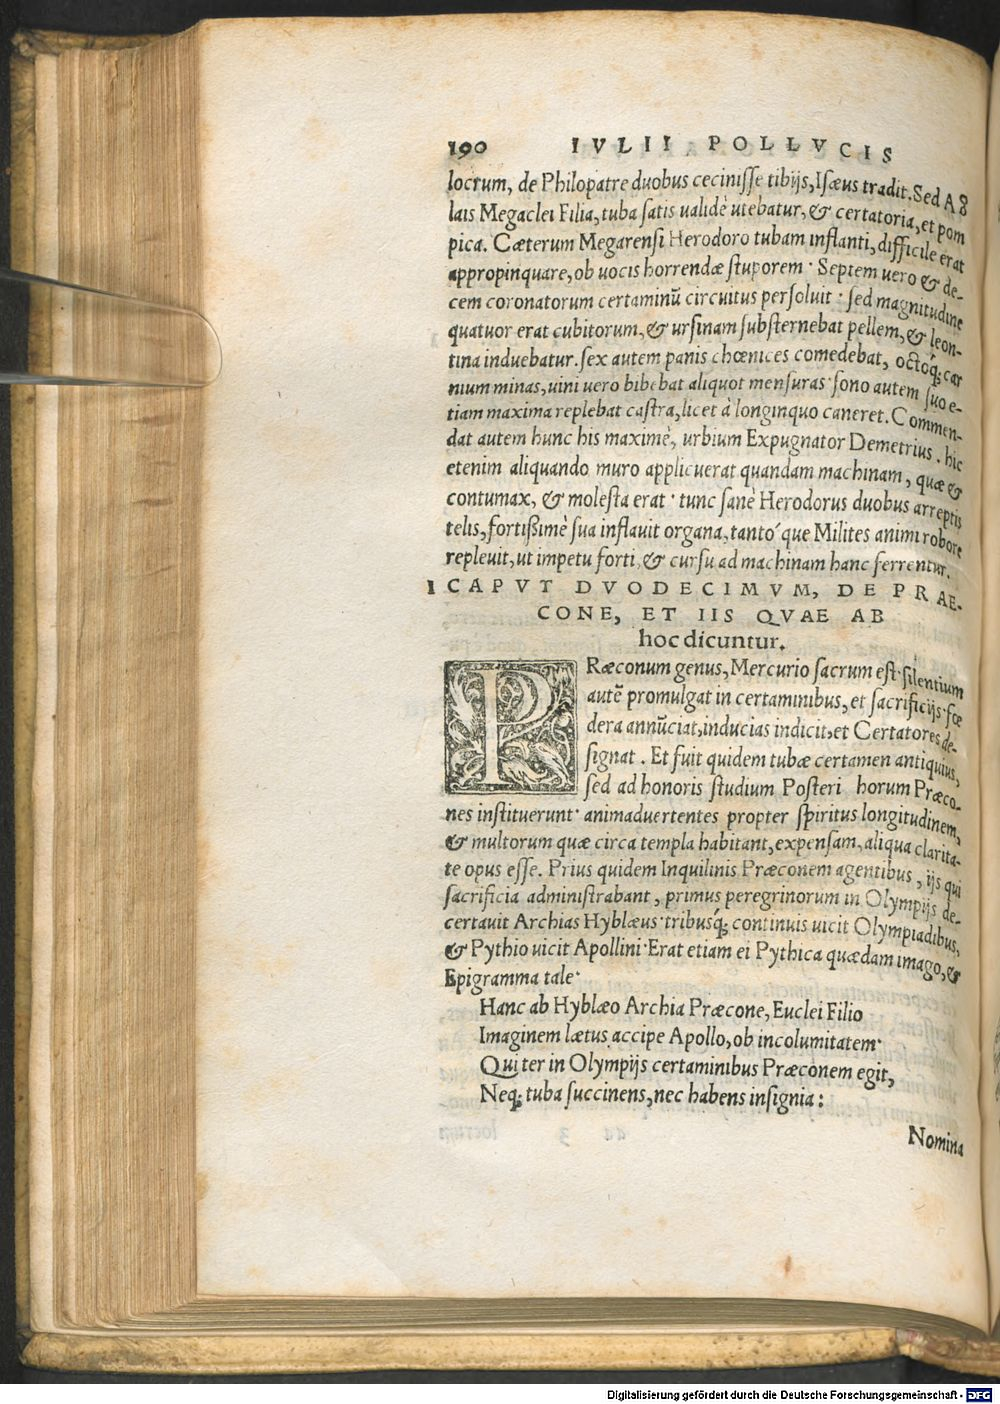 190 IVLII POLLVCIS
locrum, de Philopatre duobus cecinisse tibijs, Isæus tradit. Sed Ag
lais Megaclei Filia, tuba satis ualidè utebatur, & certatoria, et pom
pica. Cæterum Megarensi Herodoro tubam inflanti, difficile erat
appropinquare, ob uocis horrendæ stuporem · Septem uero & de-
cem coronatorum certaminū circuitus persoluit · sed magnitudine
quatuor erat cubitorum, & ursinam substernebat pellem, & leon-
tina induebatur. sex autem panis chœnices comedebat, octoq́; car
nium minas, uini uero bibebat aliquot mensuras · sono autem suo e-
tiam maxima replebat castra, licet à longinquo caneret. Commen-
dat autem hunc his maximè, urbium Expugnator Demetrius. hic
etenim aliquando muro applicuerat quandam machinam, quæ &
contumax, & molesta erat · tunc sanè Herodorus duobus arreptis
telis, fortißimè sua inflauit organa, tanto´que Milites animi robore
repleuit, ut impetu forti, & cursu ad machinam hanc ferrentur.
1 CAPVT DVODECIMVM, DE PRAE-
CONE, ET IIS QVAE AB
hoc dicuntur.
PRæconum genus, Mercurio sacrum est · silentium
autē promulgat in certaminibus, et sacrificijs · fœ
dera annūciat, inducias indicit, et Certatores de-
signat. Et fuit quidem tubæ certamen antiquius,
sed ad honoris studium Posteri horum Præco-
nes instituerunt · animaduertentes propter spiritus longitudinem,
& multorum quæ circa templa habitant, expensam, aliqua clarita-
te opus esse. Prius quidem Inquilinis Præconem agentibus, ijs qui
sacrificia administrabant, primus peregrinorum in Olympijs de-
certauit Archias Hyblæus · tribusq́; continuis uicit Olympiadibus,
& Pythio uicit Apollini · Erat etiam ei Pythica quædam imago, &
Epigramma tale ·
Hanc ab Hyblæo Archia Præcone, Euclei Filio
Imaginem lætus accipe Apollo, ob incolumitatem ·
Qui ter in Olympijs certaminibus Præconem egit,
Neq; tuba succinens, nec habens insignia :
Nomina
Digitalisierung gefördert durch die Deutsche Forschungsgemeinschaft - DFG